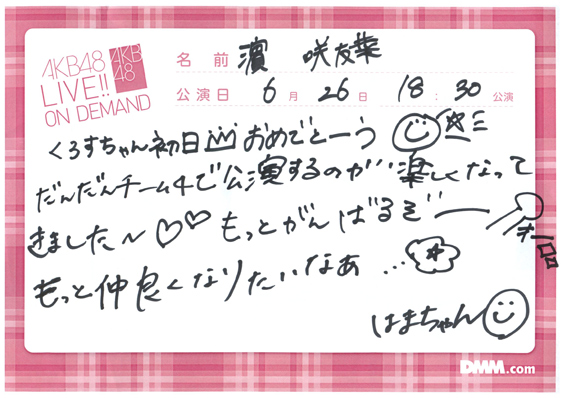 AKB48
LIVE!!
ON DEMAND
AKB
48
名前 濵 咲友菜
公演日 6月 26日 18:30公演
くろすちゃん初日おめでとーう
だんだんチーム4で公演するのが楽しくなって
きました〜♡♡ もっとがんばるぞー
オーロロ
もっと仲良くなりたいなぁ…
はまちゃん
DMM.com